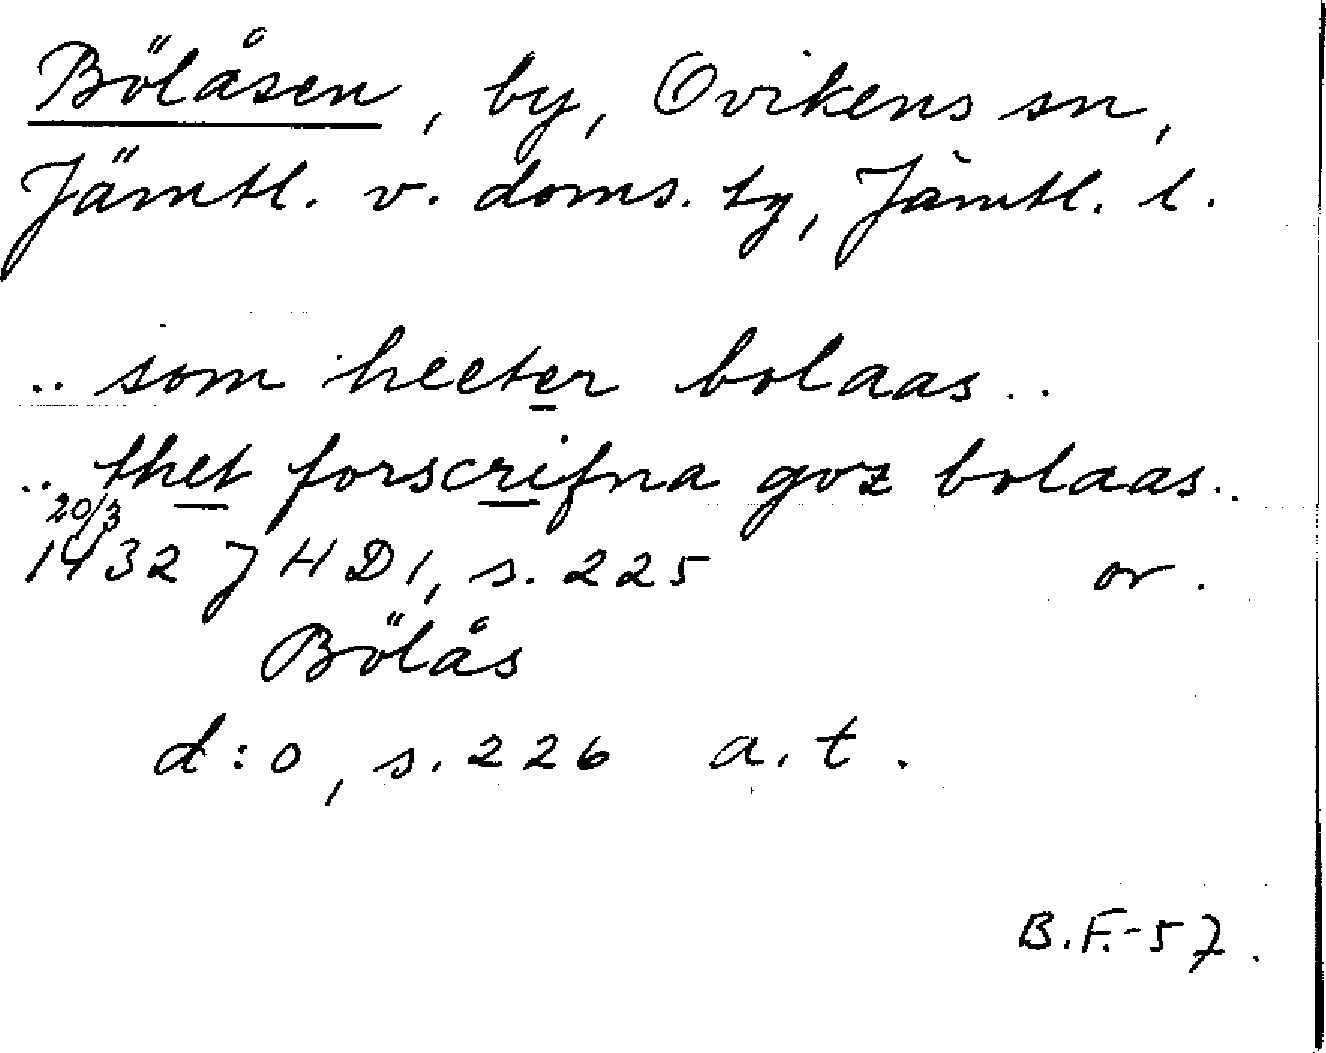 Bölåsen, by, Ovikens sn,
Jämtl. v. doms. tg, Jämtl. l.
.. som heeter bolaas ..
.. thet forscrifna goz bolaas ..
20/3
1432 JHD1, s. 225 or.
Bölås
d:o, s. 226 a. t.
B.F.-57.